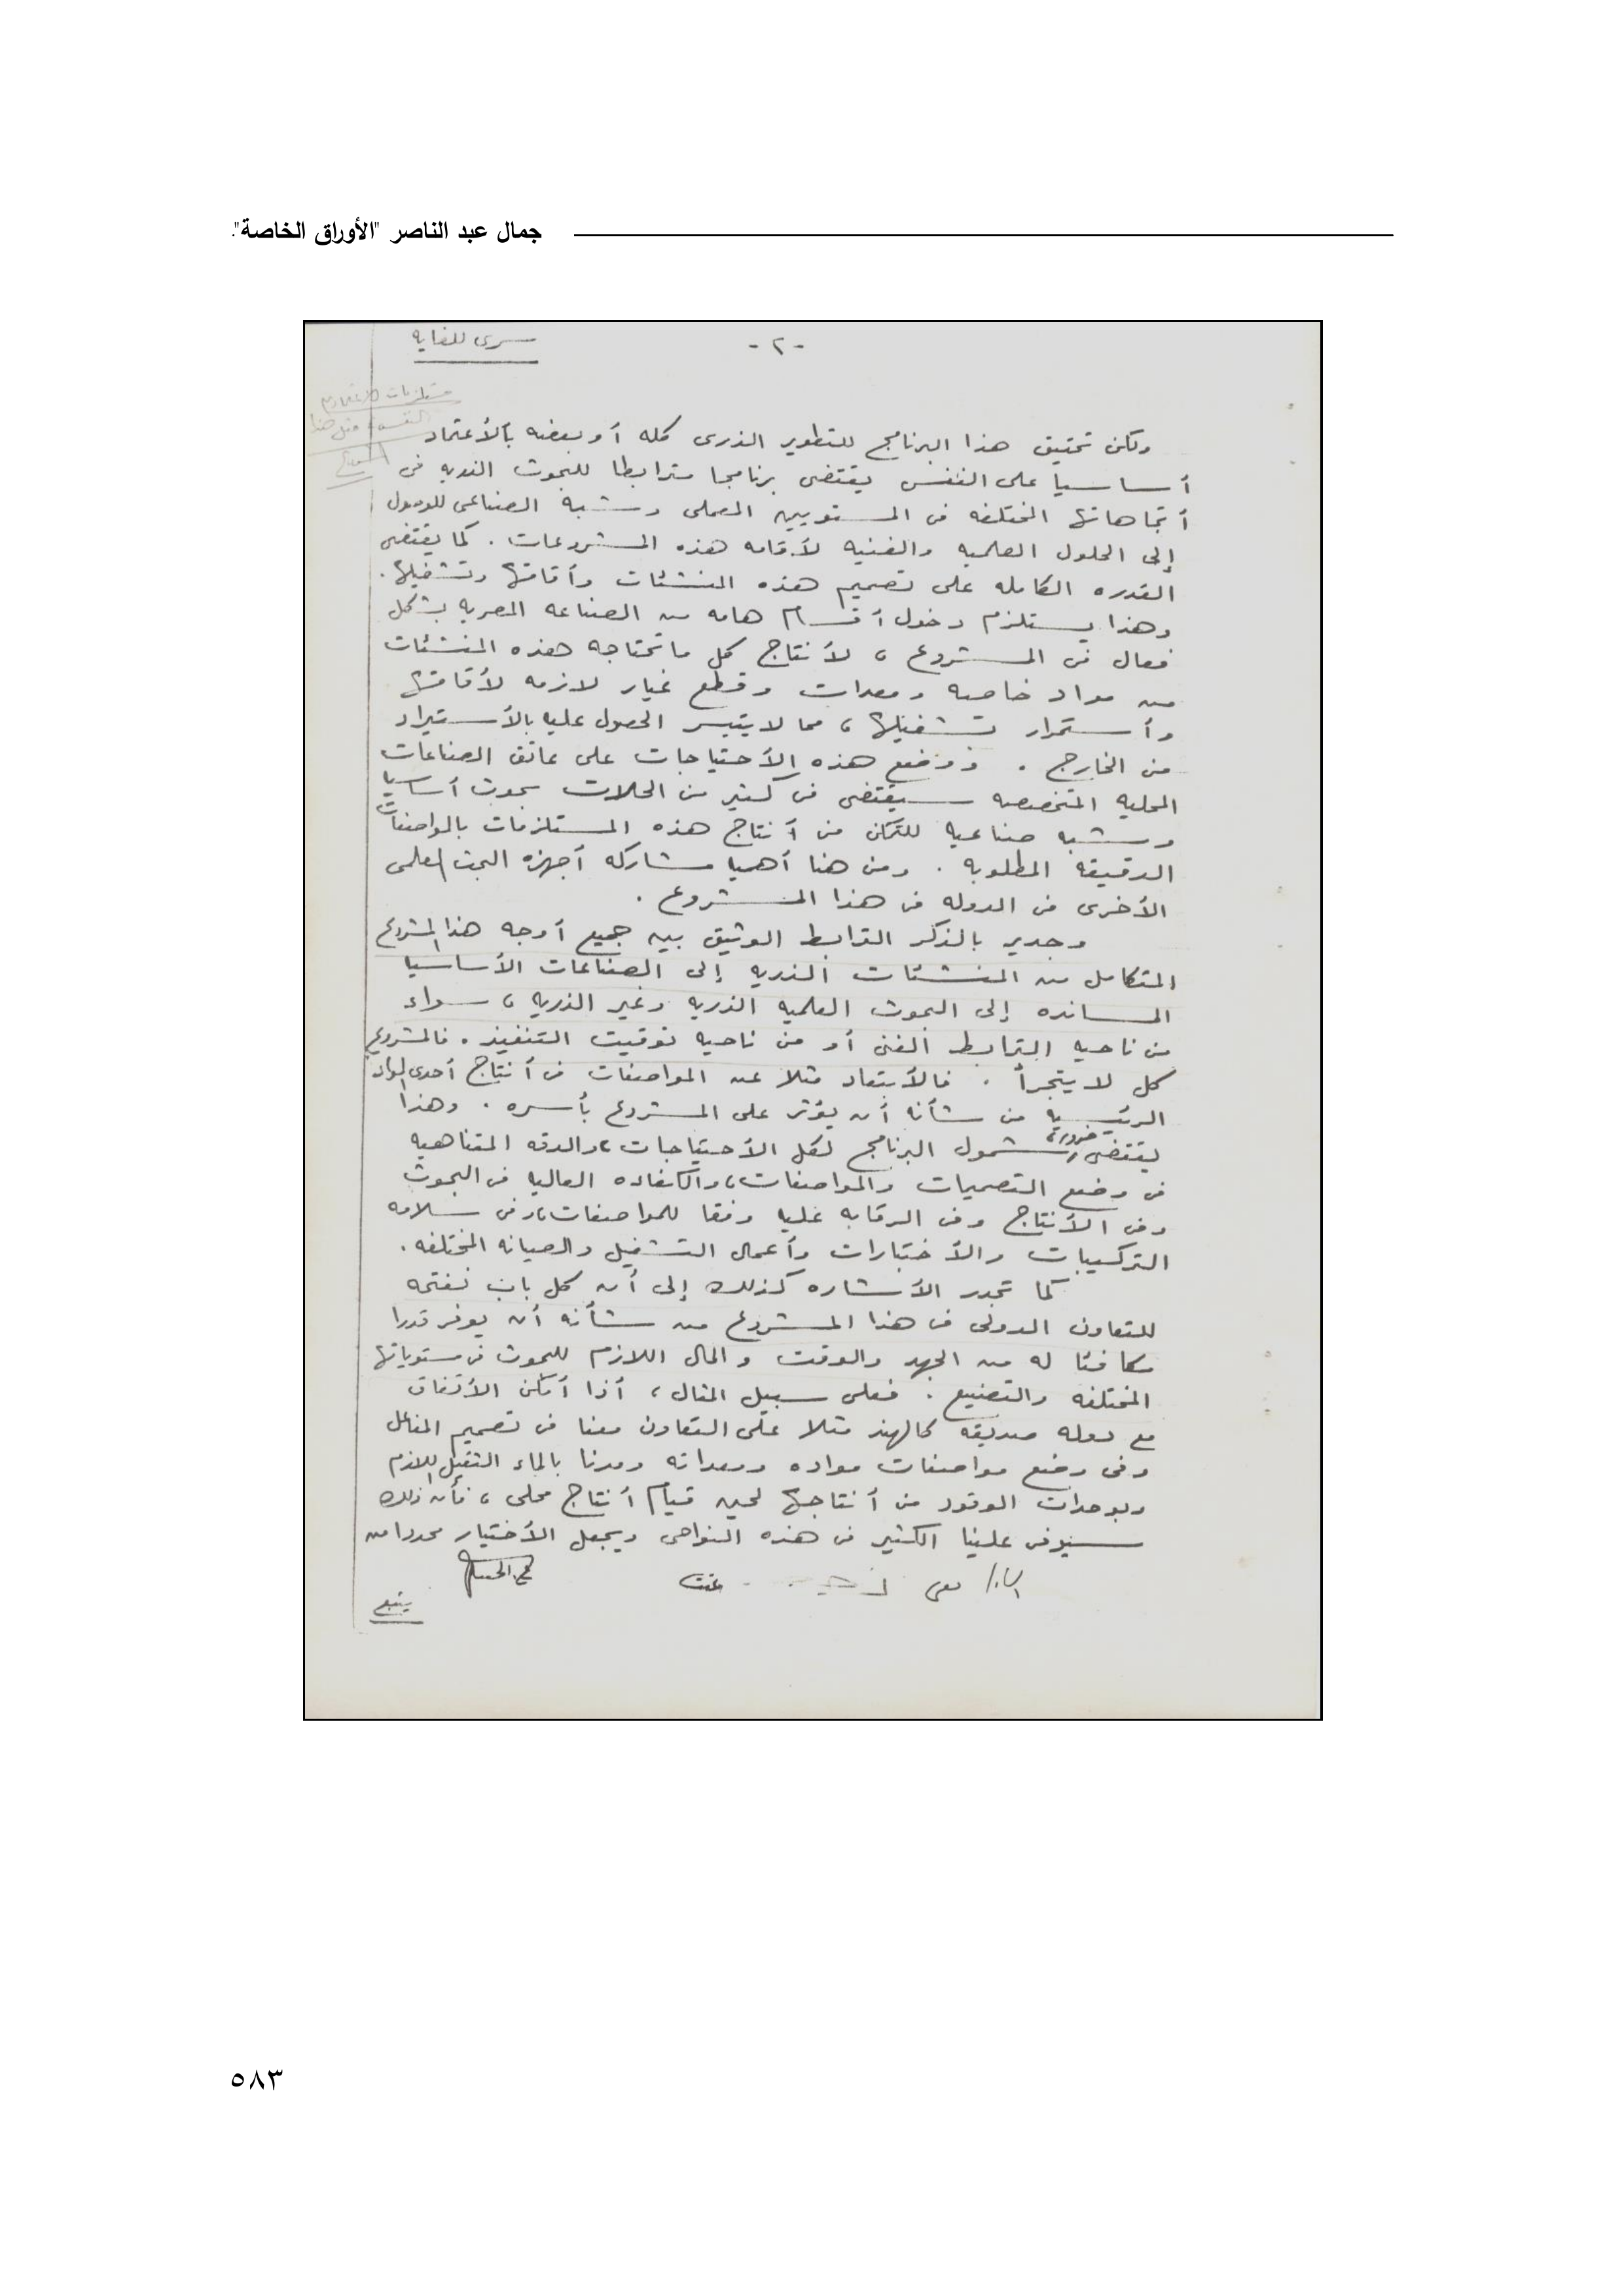 جمال عبد الناصر "الأوراق الخاصة".
سرى للغايه
- ٢ -
مستلزمات الاعتماد
مثل هذا
ولكن تحقيق هذا البرنامج للتطوير الذرى كله أو بعضه بالأعتماد
أساسيا على النفس يقتضى برنامجا مترابطا للبحوث الذريه فى
أتجاهاتها المختلفه فى المستويين المعملى وشبه الصناعى للوصول
إلى الحلول العلميه والفنيه لأقامه هذه المشروعات . كما يقتضى
القدره الكامله على تصميم هذه المنشئات وأقامتها وتشغيلها .
وهذا يستلزم دخول أقسام هامه من الصناعه المصريه بشكل
فعال فى المشروع ، لأنتاج كل ماتحتاجه هذه المنشئات
من مواد خاصه ومعدات وقطع غيار لازمه لأقامتها
وأستمرار تشغيلها ، مما لا يتيسر الحصول عليه بالأستيراد
من الخارج . ووضع هذه الأحتياجات على عاتق الصناعات
المحليه المتخصصه سيقتضى فى كثير من الحالات بحوث أساسيا
وشبه صناعيه للتمكن من أنتاج هذه المستلزمات بالمواصفات
الدقيقه المطلوبه . ومن هنا أهميا مشاركه أجهزه البحث العلمى
الأخرى فى الدوله فى هذا المشروع .
وجدير بالذكر الترابط الوثيق بين جميع أوجه هذا المشروع
المتكامل من المنشئات الذريه إلى الصناعات الأساسيا
المسانده إلى البحوث العلميه الذريه وغير الذريه ، سواء
من ناحيه الترابط الفنى أو من ناحيه توقيت التنفيذ . فالمشروع
كل لا يتجزأ . فالأبتعاد مثلا عن المواصفات فى أنتاج أحدى المواد
الرئيسيه من شأنه أن يؤثر على المشروع بأسره . وهذا
يقتضى ضرورة شمول البرنامج لكل الأحتياجات ، والدقه المتناهيه
فى وضع التصميمات والمواصفات ، والكفاءه العاليه فى البحوث
وفى الأنتاج وفى الرقابه عليه وفقا للمواصفات ، وفى سلامه
التركيبات والأختبارات وأعمال التشغيل والصيانه المختلفه .
كما تجدر الأشاره كذلك إلى أن كل باب نفتحه
للتعاون الدولى فى هذا المشروع من شأنه أن يوفر قدرا
مكافئا له من الجهد والوقت والمال اللازم للبحوث فى مستوياتها
المختلفه والتصنيع . فعلى سبيل المثال ، أذا أمكن الأتفاق
مع دوله صديقه كالهند مثلا على التعاون معنا فى تصميم المفاعل
وفى وضع مواصفات مواده ومعداته ومدنا بالماء الثقيل اللازم
وبوحدات الوقود من أنتاجها لحين قيام أنتاج محلى ، فأن ذلك
سيوفر علينا الكثير فى هذه النواحى ويجعل الأختيار محددا من
يتبع
٥٨٣